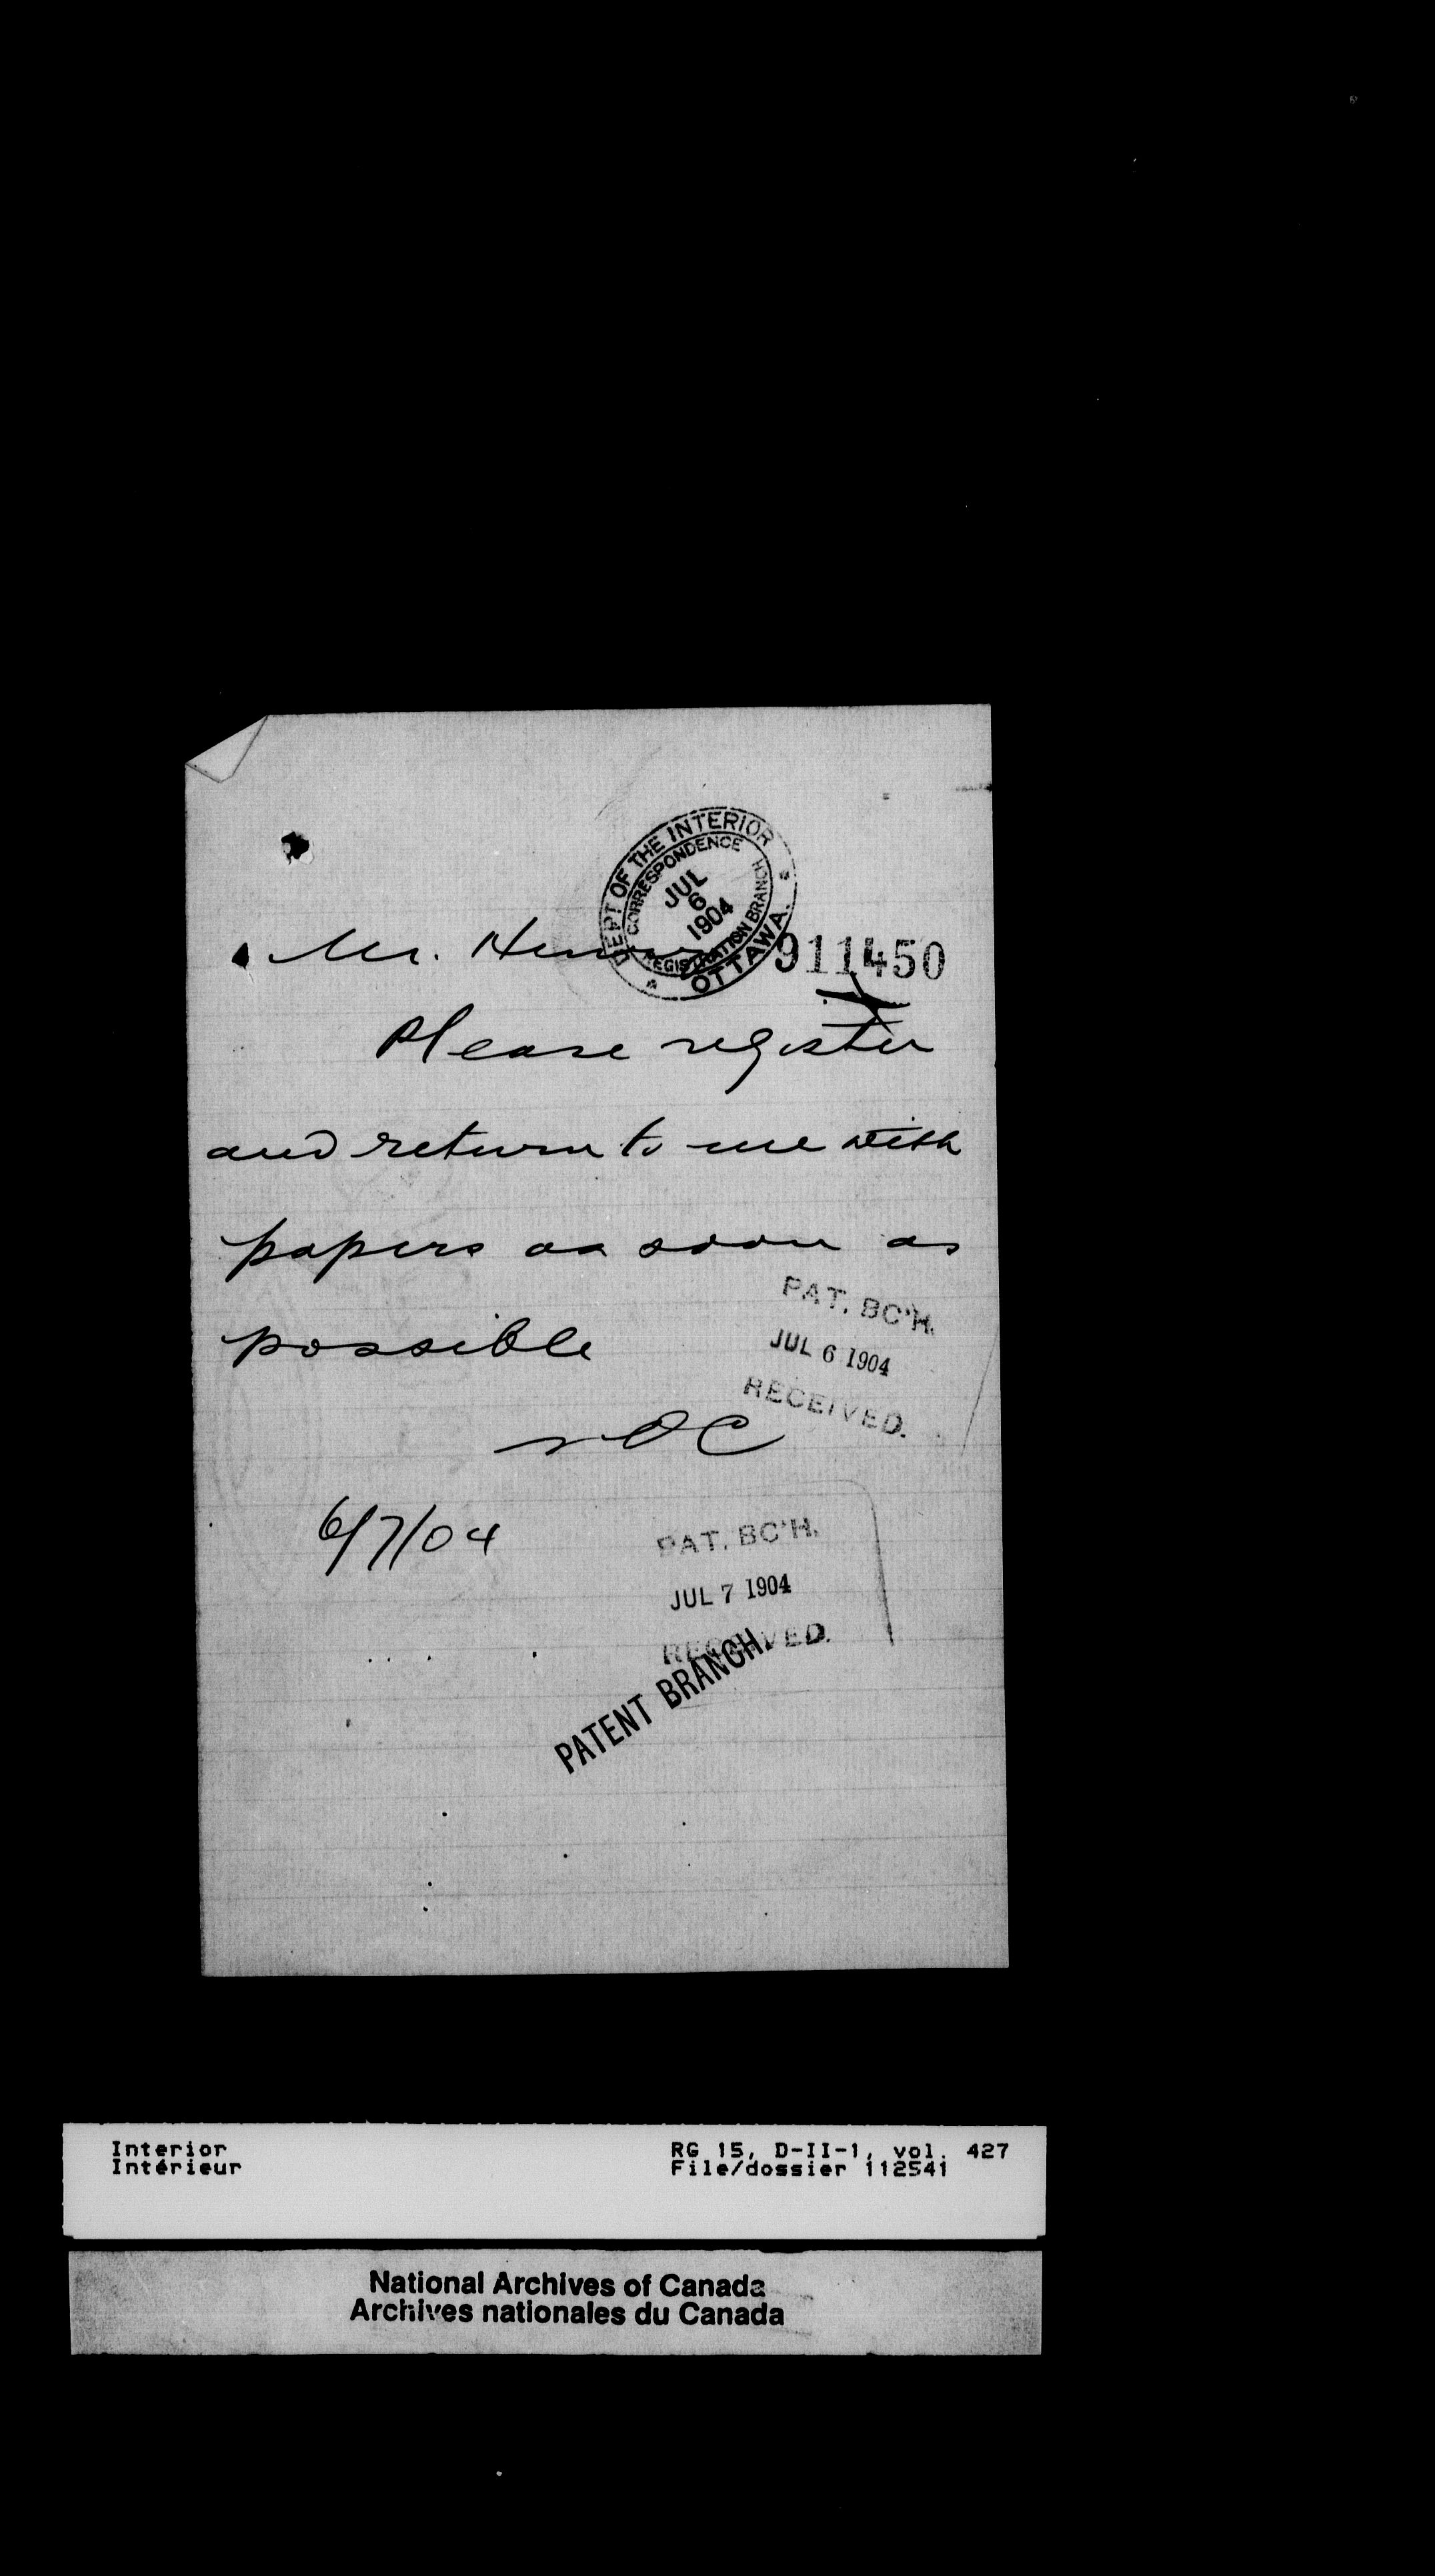 DEPT OF THE INTERIOR
CORRESPONDENCE
JUL
6
1904
REGISTRATION BRANCH
OTTAWA.
Mr.
911450
Please register
and return to me with
papers as soon as
possible
PAT. BC'H.
JUL 6 1904
RECEIVED.
6/7/04
PAT. BC'H.
JUL 7 1904
RECEIVED.
PATENT BRANCH.
Interior
Intérieur
RG 15, D-II-1, vol. 427
File/dossier 112541
National Archives of Canada
Archives nationales du Canada